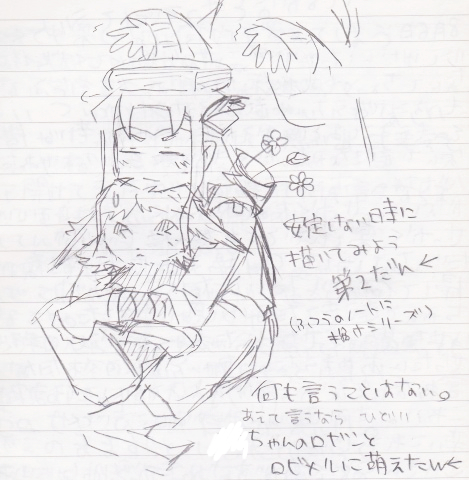 安定しない時に
描いてみよう
第2だん←
(ふつうのノートに
描けシリーズ)
何も言うことはない。
あえて言うなら ひどいい
ちゃんのロビンと
ロビメルに萌えたんや